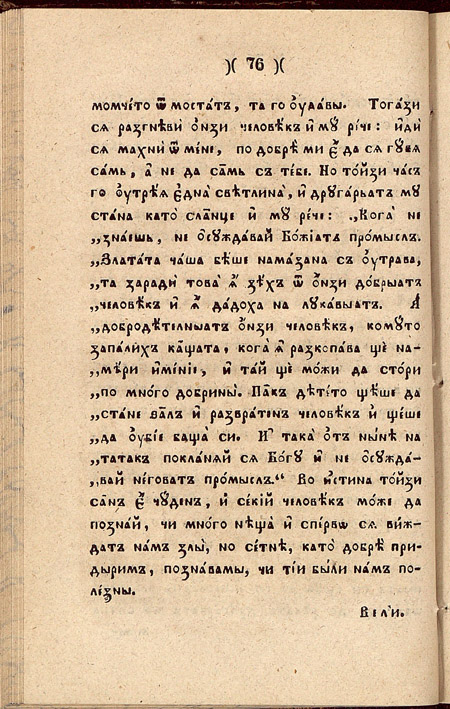 )( 76 )(
момче́то ѿ моста́тъ, та го ѹдави. Тога́зи
ся разгнѣви о́нзи человѣ́къ и мꙋ ре́че: иди́
ся махни́ ѿ ме́не, по добрѣ́ ми є да ся гꙋбя
са́мъ, а не да са́мь съ те́бе. Но то́йзи часъ
го ѹтрѣя една̀ свѣтлина̀, и дрꙋга́рьатъ мꙋ
ста́на като̀ сла́нце и мꙋ ре́че: „Кога̀ не
„зна́ешь, не ѻсꙋжда́вай Бо́жіатъ про́мыслъ.
„Злата́та ча́ша бѣ́ше нама́зана съ ѹтрава,
„та зарадѝ това̀ ѧ зѣхъ ѿ о́нзи до́брыатъ
„человѣ́къ и ѧ да́доха на лꙋка́выатъ. А
„доброде́телныатъ о́нзи человѣ́къ, комꙋто
запали́хъ ка́щата, кога̀ ѧ разкопа́ва ще на-
„мѣ́ри имѣ́ніе, и та́й ще мо́жи да сто́ри
„по мно́го добрины̀. Па́къ дѣти́то щѣ́ше да
„ста́не ва́лъ и развра́тенъ человѣ́къ и ще́ше
„да ѹбі́е баща̀ си. И така̀ отъ ны́нѣ на
„тата́къ покла́няй ся Бо́гꙋ и не ѻсꙋжда́-
„вай не́говатъ про́мыслъ.“ Во и́стина то́йзи
санъ є чꙋ́денъ, и се́кій человѣ́къ мо́же да
позна́й, чи мно́го нѣ́ща и спе́рвѡ ся ви́ж-
датъ на́мъ злы̀, но се́тнѣ, като̀ добрѣ̀ при-
дыримъ, позна́вамы, чи ті́и бы́ли на́мъ по-
ле́зны.
Вели.